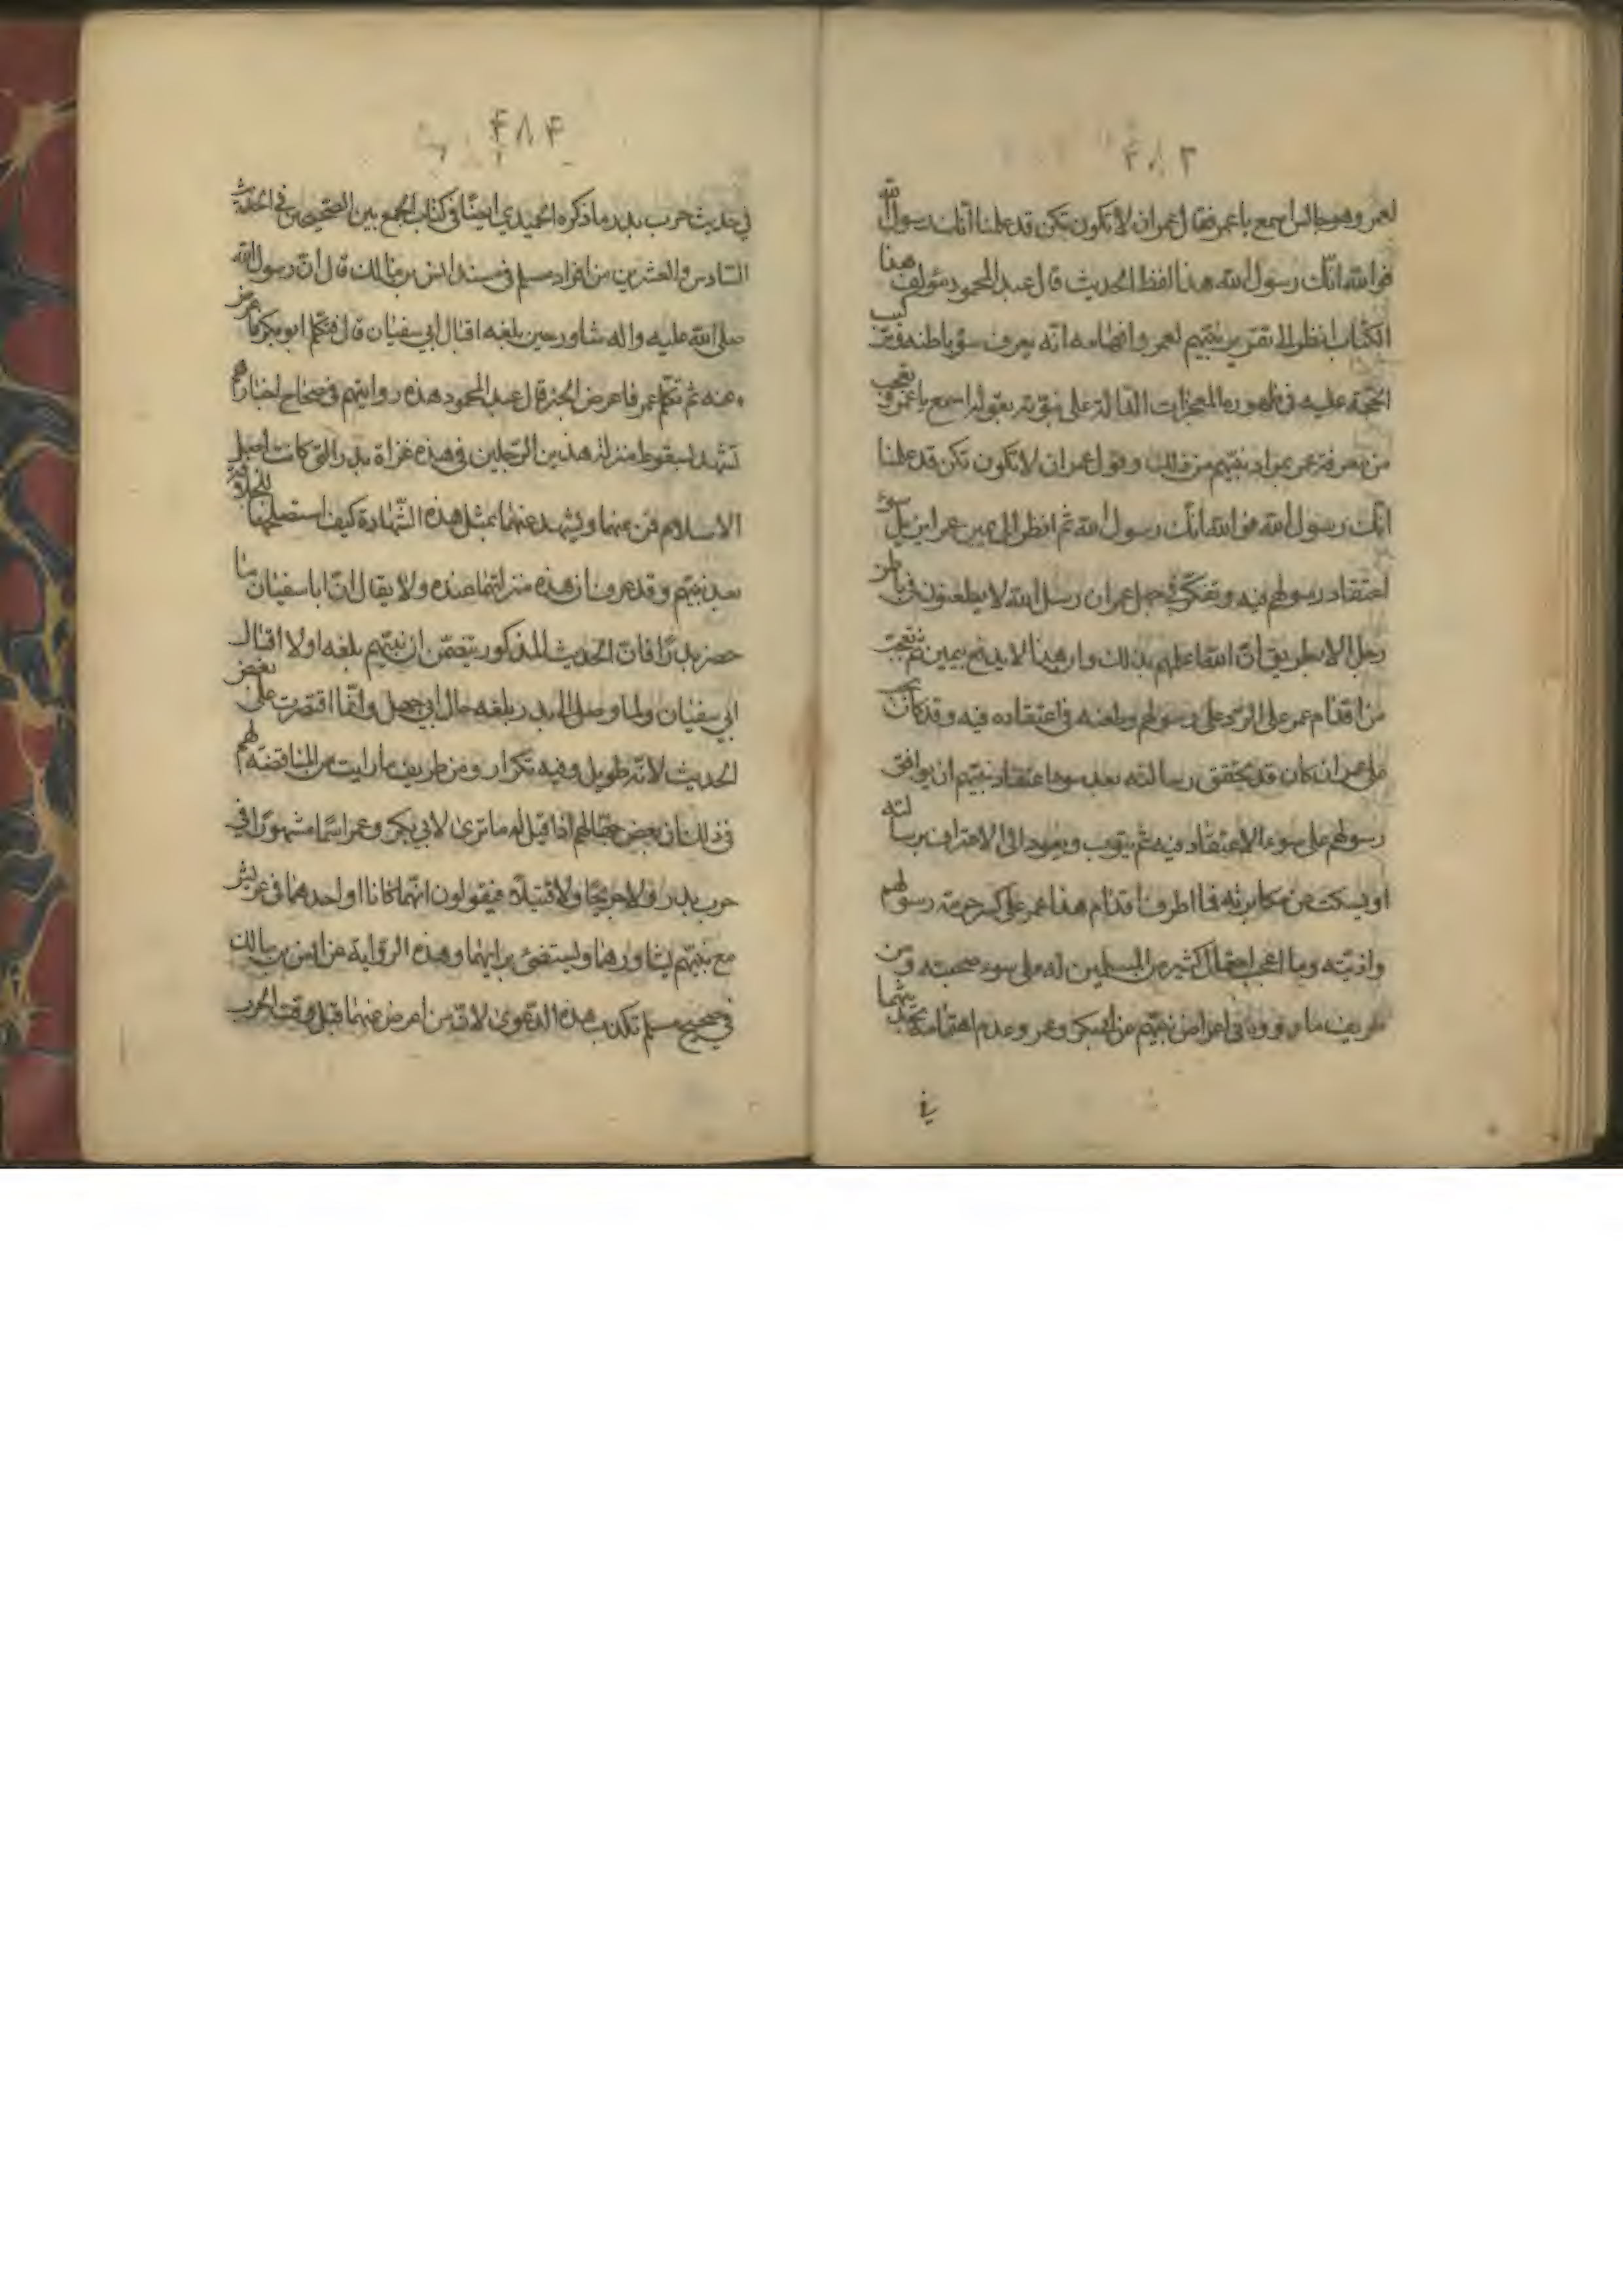 ٤٨٣
لعمر وهو جالس اسمع يا عمر فقال عمر ان لا تكون تكن قد علمنا انك رسول الله
فوالله انك رسول الله هذا لفظ الحديث قال عبد المحمود مؤلف هذا
الكتاب انظر الى تقريب نبيهم لعمر وافهامه انه يعرف سؤ باطنه
الحجة عليه في ظهوره المعجزات الدالة على نبوته بقوله اسمع يا عمر وتعجب
من معرفة عمر بمراد نبيهم من ذلك وقول عمر ان لا تكون تكن قد علمنا
انك رسول الله فوالله انك رسول الله ثم انظر الى يمين عمر اين يزيل سوء
اعتقاد رسولهم فيه وتفكر في جهل عمر ان رسل الله لا يطعنون في باطن
رجل الا بطريق ان الله اعلمهم بذلك وان هذا لا يندفع بيمين ثم تعجب
من اقدام عمر على الرد على رسولهم وطعنه في اعتقاده فيه وقد كان يجب
على عمر ان كان قد تحقق رسالته بعد سوء اعتقاد نبيهم ان يوافق
رسولهم على سوء الاعتقاد فيه ثم يتوب ويعود الى الاعتراف برسالته
او يسكت عن مكابرته فما اطرف اقدام هذا عمر على كسر حرمة رسولهم
واذيته وما اعجب احتمال كثير من المسلمين له على سوء صحبته ومن
طريف ما رووه في اعراض نبيهم عن ابي بكر وعمر وعدم اهتمامه بحديثهما
في
٤٨٤
في حديث حرب بدر ما ذكره الحميدي ايضا في كتاب الجمع بين الصحيحين في الحديث
السادس والعشرين من افراد مسلم في مسند انس بن مالك قال ان رسول الله
صلى الله عليه واله شاور حين بلغه اقبال ابي سفيان قال فتكلم ابو بكر فاعرض
عنه ثم تكلم عمر فاعرض الخبر قال عبد المحمود هذه روايتهم في صحاح اخبارهم
تشهد بسقوط منزلة هذين الرجلين في هذه غزاة بدر التي كانت اصل
الاسلام فمن عنهما ويشهد عنهما بمثل هذه الشهادة كيف استصلحهما للخلافة
بعد نبيهم وقد عرفنا ان هذه منزلتهما عنده ولا يقال ان ابا سفيان ما
حضر بدرا فان الحديث المذكور يتضمن ان نبيهم بلغه اولا اقبال
ابي سفيان ولما وصل الى بدر بلغه حال ابي جهل وانما اقتصرت على بعض
الحديث لانه طويل وفيه تكرار ومن طريف ما رايت من المناقضة لهم
في ذلك ان بعض جهالهم اذا قيل له ما ترى لابي بكر وعمر اسما مشهورا في
حرب بدر ولا جريحا ولا قتيلا فيقولون انهما كانا او احدهما في عريش
مع نبيهم يشاورهما ويستضئ برايهما وهذه الرواية عن انس بن مالك
في صحيح مسلم تكذب هذه الدعوى لان من اعرض عنهما قبل وقت الحرب